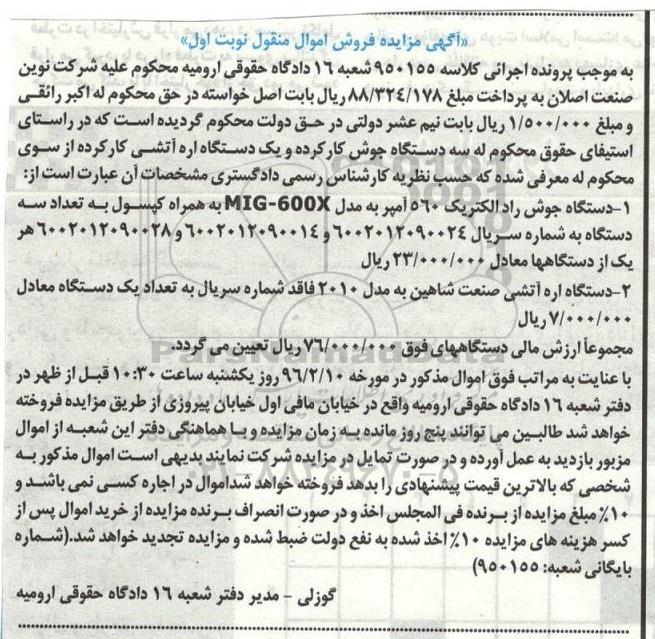 «آگهی مزایده فروش اموال منقول نوبت اول»
به موجب پرونده اجرائی کلاسه ۹۵۰۱۵۵ شعبه ۱۶ دادگاه حقوقی ارومیه محکوم علیه شرکت نوین
صنعت اصلان به پرداخت مبلغ ۸۸/۳۲۴/۱۷۸ ریال بابت اصل خواسته در حق محکوم له اکبر رائقی
و مبلغ ۱/۵۰۰/۰۰۰ ریال بابت نیم عشر دولتی در حق دولت محکوم گردیده است که در راستای
استیفای حقوق محکوم له سه دستگاه جوش کارکرده و یک دستگاه اره آتشی کارکرده از سوی
محکوم له معرفی شده که حسب نظریه کارشناس رسمی دادگستری مشخصات آن عبارت است از:
۱-دستگاه جوش راد الکتریک ۵۶۰ آمپر به مدل MIG-600X به همراه کپسول به تعداد سه
دستگاه به شماره سریال ۶۰۰۲۰۱۲۰۹۰۰۲۴ و ۶۰۰۲۰۱۲۰۹۰۰۱۴ و ۶۰۰۲۰۱۲۰۹۰۰۲۸ هر
یک از دستگاهها معادل ۲۳/۰۰۰/۰۰۰ ریال
۲-دستگاه اره آتشی صنعت شاهین به مدل ۲۰۱۰ فاقد شماره سریال به تعداد یک دستگاه معادل
۷/۰۰۰/۰۰۰ ریال
مجموعاً ارزش مالی دستگاههای فوق ۷۶/۰۰۰/۰۰۰ ریال تعیین می گردد.
ParsNamadData
با عنایت به مراتب فوق اموال مذکور در مورخه ۹۶/۲/۱۰ روز یکشنبه ساعت ۱۰:۳۰ قبل از ظهر در
دفتر شعبه ۱۶ دادگاه حقوقی ارومیه واقع در خیابان مافی اول خیابان پیروزی از طریق مزایده فروخته
خواهد شد طالبین می توانند پنج روز مانده به زمان مزایده و با هماهنگی دفتر این شعبه از اموال
مزبور بازدید به عمل آورده و در صورت تمایل در مزایده شرکت نمایند بدیهی است اموال مذکور به
شخصی که بالاترین قیمت پیشنهادی را بدهد فروخته خواهد شداموال در اجاره کسی نمی باشد و
۱۰٪ مبلغ مزایده از برنده فی المجلس اخذ و در صورت انصراف برنده مزایده از خرید اموال پس از
کسر هزینه های مزایده ۱۰٪ اخذ شده به نفع دولت ضبط شده و مزایده تجدید خواهد شد.(شماره
بایگانی شعبه: ۹۵۰۱۵۵)
گوزلی - مدیر دفتر شعبه ۱۶ دادگاه حقوقی ارومیه